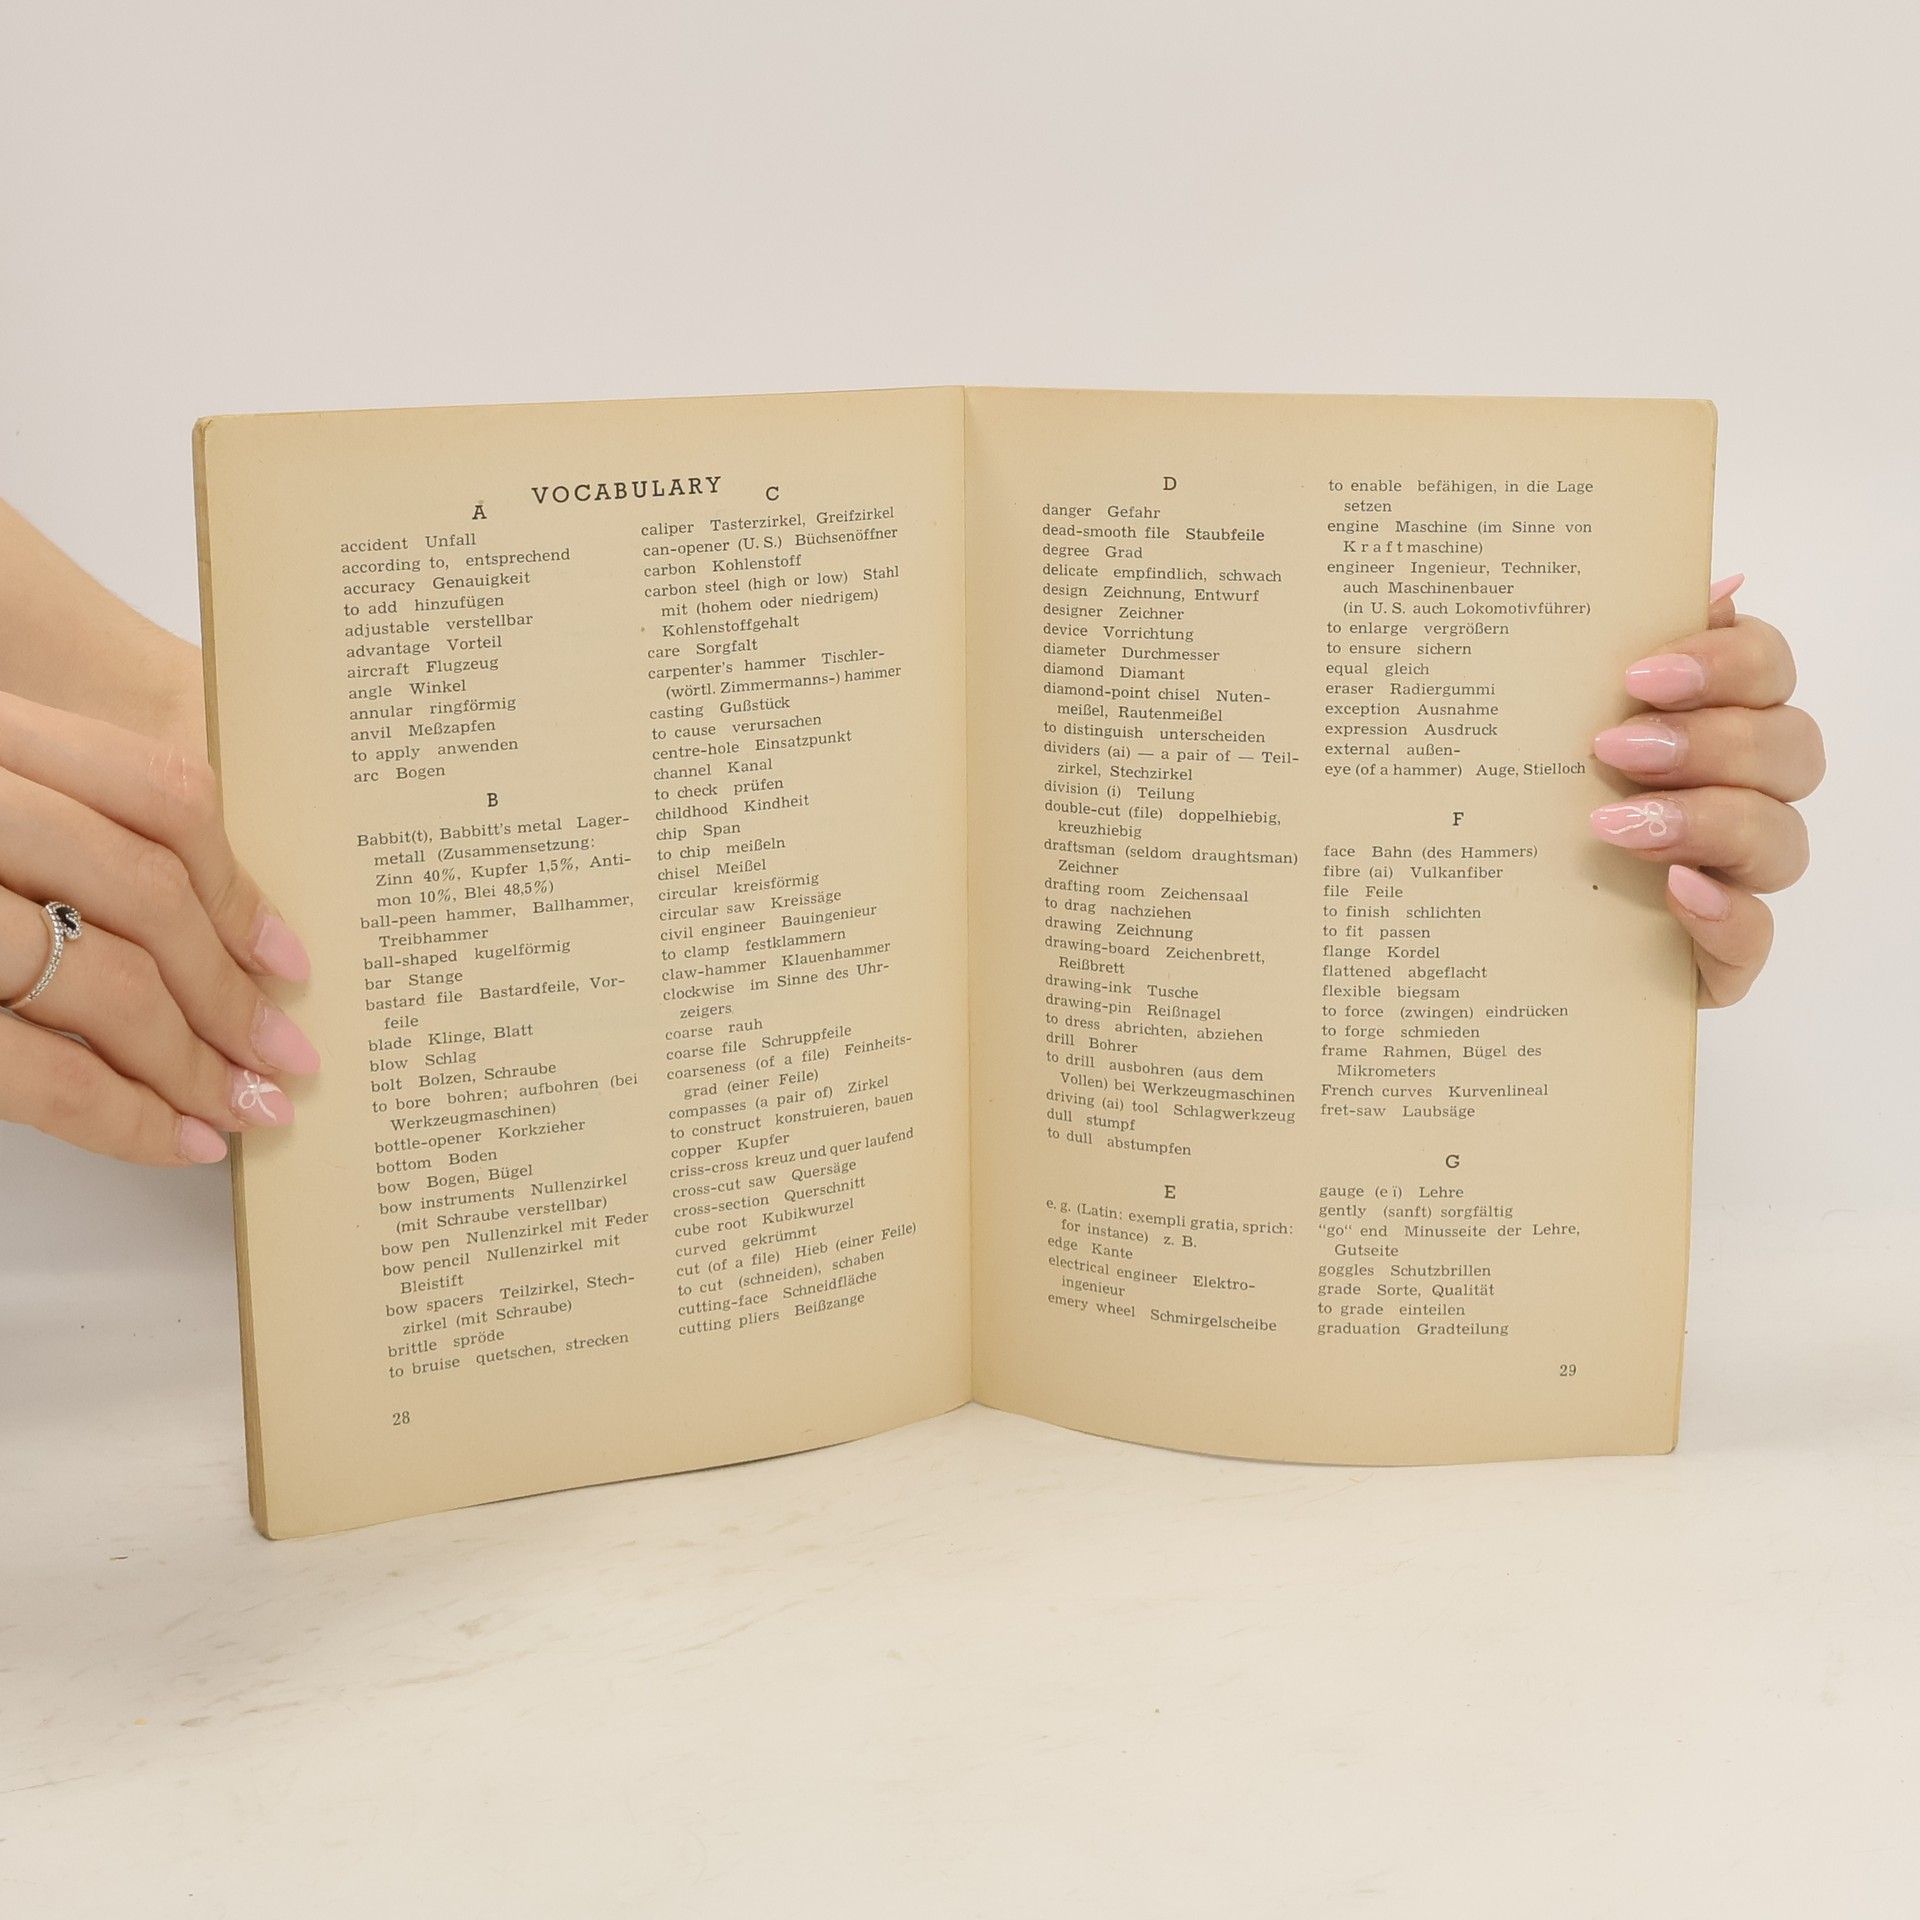 VOCABULARY
A
accident Unfall
according to, entsprechend
accuracy Genauigkeit
to add hinzufügen
adjustable verstellbar
advantage Vorteil
aircraft Flugzeug
angle Winkel
annular ringförmig
anvil Meßzapfen
to apply anwenden
arc Bogen
B
Babbit(t), Babbitt's metal Lager-
metall (Zusammensetzung:
Zinn 40%, Kupfer 1,5%, Anti-
mon 10%, Blei 48,5%)
ball-peen hammer, Ballhammer,
Treibhammer
ball-shaped kugelförmig
bar Stange
bastard file Bastardfeile, Vor-
feile
blade Klinge, Blatt
blow Schlag
bolt Bolzen, Schraube
to bore bohren; aufbohren (bei
Werkzeugmaschinen)
bottle-opener Korkzieher
bottom Boden
bow Bogen, Bügel
bow instruments Nullenzirkel
(mit Schraube verstellbar)
bow pen Nullenzirkel mit Feder
bow pencil Nullenzirkel mit
Bleistift
bow spacers Teilzirkel, Stech-
zirkel (mit Schraube)
brittle spröde
to bruise quetschen, strecken
28
C
caliper Tasterzirkel, Greifzirkel
can-opener (U. S.) Büchsenöffner
carbon Kohlenstoff
carbon steel (high or low) Stahl
mit (hohem oder niedrigem)
Kohlenstoffgehalt
care Sorgfalt
carpenter's hammer Tischler-
(wörtl. Zimmermanns-) hammer
casting Gußstück
to cause verursachen
centre-hole Einsatzpunkt
channel Kanal
to check prüfen
childhood Kindheit
chip Span
to chip meißeln
chisel Meißel
circular kreisförmig
circular saw Kreissäge
civil engineer Bauingenieur
to clamp festklammern
claw-hammer Klauenhammer
clockwise im Sinne des Uhr-
zeigers
coarse rauh
coarse file Schruppfeile
coarseness (of a file) Feinheits-
grad (einer Feile)
compasses (a pair of) Zirkel
to construct konstruieren, bauen
copper Kupfer
criss-cross kreuz und quer laufend
cross-cut saw Quersäge
cross-section Querschnitt
cube root Kubikwurzel
curved gekrümmt
cut (of a file) Hieb (einer Feile)
to cut (schneiden), schaben
cutting-face Schneidfläche
cutting pliers Beißzange
D
danger Gefahr
dead-smooth file Staubfeile
degree Grad
delicate empfindlich, schwach
design Zeichnung, Entwurf
designer Zeichner
device Vorrichtung
diameter Durchmesser
diamond Diamant
diamond-point chisel Nuten-
meißel, Rautenmeißel
to distinguish unterscheiden
dividers (ai) — a pair of — Teil-
zirkel, Stechzirkel
division (i) Teilung
double-cut (file) doppelhiebig,
kreuzhiebig
draftsman (seldom draughtsman)
Zeichner
drafting room Zeichensaal
to drag nachziehen
drawing Zeichnung
drawing-board Zeichenbrett,
Reißbrett
drawing-ink Tusche
drawing-pin Reißnagel
to dress abrichten, abziehen
drill Bohrer
to drill ausbohren (aus dem
Vollen) bei Werkzeugmaschinen
driving (ai) tool Schlagwerkzeug
dull stumpf
to dull abstumpfen
E
e. g. (Latin: exempli gratia, sprich:
for instance) z. B.
edge Kante
electrical engineer Elektro-
ingenieur
emery wheel Schmirgelscheibe
to enable befähigen, in die Lage
setzen
engine Maschine (im Sinne von
Kraftmaschine)
engineer Ingenieur, Techniker,
auch Maschinenbauer
(in U. S. auch Lokomotivführer)
to enlarge vergrößern
to ensure sichern
equal gleich
eraser Radiergummi
exception Ausnahme
expression Ausdruck
external außen-
eye (of a hammer) Auge, Stielloch
F
face Bahn (des Hammers)
fibre (ai) Vulkanfiber
file Feile
to finish schlichten
to fit passen
flange Kordel
flattened abgeflacht
flexible biegsam
to force (zwingen) eindrücken
to forge schmieden
frame Rahmen, Bügel des
Mikrometers
French curves Kurvenlineal
fret-saw Laubsäge
G
gauge (eï) Lehre
gently (sanft) sorgfältig
“go“ end Minusseite der Lehre,
Gutseite
goggles Schutzbrillen
grade Sorte, Qualität
to grade einteilen
graduation Gradteilung
29